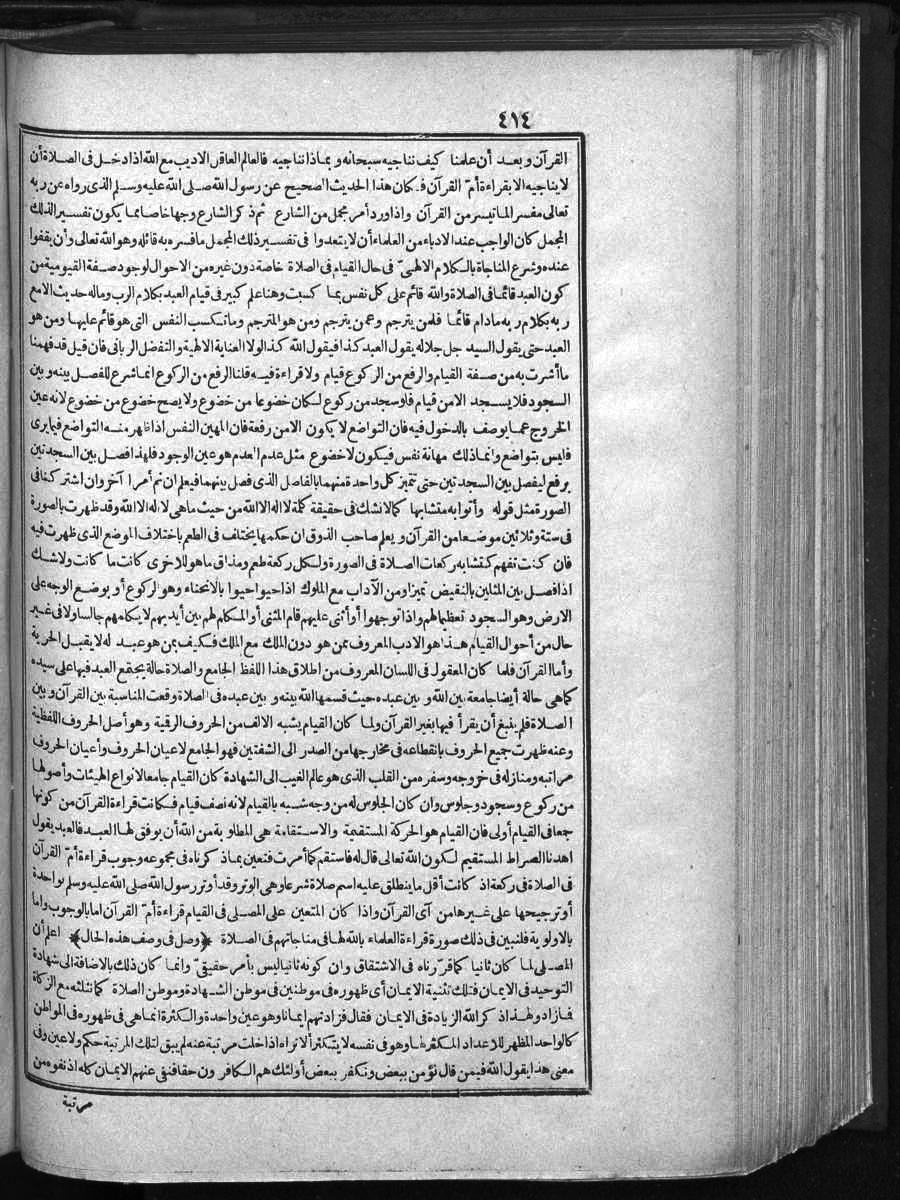 ٤١٤
القرآن وبعد أن علمنا كيف نناجيه سبحانه وبماذا نناجيه فالعالم العاقل الاديب مع الله اذا دخل في الصلاة أن
لا يناجيه الا بقراءة أمّ القرآن فكان هذا الحديث الصحيح عن رسول الله صلى الله عليه وسلم الذى رواه عن ربه
تعالى مفسر الما تيسر من القرآن واذا ورد أمر مجمل من الشارع ثم ذكر الشارع وجها خاصا مما يكون تفسير الذلك
المجمل كان الواجب عند الادباء من العلماء أن لا يتعدوا فى تفسير ذلك المجمل ما فسره به قائله وهو الله تعالى وأن يقفوا
عنده وشرع المناجاة بالكلام الالهىّ فى حال القيام فى الصلاة خاصة دون غيره من الاحوال لوجود صفة القيومية من
كون العبد قائما فى الصلاة والله قائم على كل نفس بما كسبت وهنا علم كبير فى قيام العبد بكلام الرب وماله حديث الامع
ربه بكلام ربه مادام قائما فلمن يترجم وعمن يترجم ومن هو المترجم وما تكسب النفس التى هو قائم عليها ومن هو
العبد حتى يقول السيد جل جلاله يقول العبد كذا فيقول الله كذا لولا العناية الالهية والتفضل الربانى فان قيل قد فهمنا
ما أشرت به من صفة القيام والرفع من الركوع قيام ولا قراءة فيه قلنا الرفع من الركوع انما شرع للفصل بينه وبين
السجود فلا يسجد الا من قيام فلو سجد من ركوع لكان خضوعا من خضوع ولا يصح خضوع من خضوع لانه عين
الخروج عما يوصف بالدخول فيه فان التواضع لا يكون الا من رفعة فان المهين النفس اذا ظهر منه التواضع فيما يرى
فليس بتواضع وانما ذلك مهانة نفس فيكون لا خضوع مثل عدم العدم هو عين الوجود فلهذا فصل بين السجدتين
برفع ليفصل بين السجدتين حتى تتميز كل واحدة منهما بالفاصل الذى فصل بينهما فيعلم ان ثم أمرا آخر وان اشتركا فى
الصورة مثل قوله وأتوا به متشابها كما لا نشك فى حقيقة كلمة لا اله الا الله من حيث ما هى لا اله الا الله وقد ظهرت بالصورة
فى ستة وثلاثين موضعا من القرآن ويعلم صاحب الذوق ان حكمها يختلف فى الطعم باختلاف الموضع الذى ظهرت فيه
فان كنت تفهم كتشابه ركعات الصلاة فى الصورة ولكل ركعة طعم ومذاق ما هو للاخرى كانت ما كانت ولا شك
اذا فصل بين المثلين بالنقيض تميزا ومن الآداب مع الملوك اذا حيوا حيوا بالانحناء وهو الركوع أو بوضع الوجه على
الارض وهو السجود تعظيما لهم واذا توجهوا أو أثنى عليهم قام المثنى أو المكلم لهم بين أيديهم لا يكلمهم جالسا ولا فى غير
حال من أحوال القيام هذا هو الادب المعروف ممن هو دون الملك مع الملك فكيف بمن هو عبد له لا يقبل الحرية
وأما القرآن فلما كان المعقول فى اللسان المعروف من اطلاق هذا اللفظ الجامع والصلاة حالة يجتمع العبد فيها على سيده
كما هى حالة أيضا جامعة بين الله و بين عبده حيث قسمها الله بينه و بين عبده فى الصلاة وقعت المناسبة بين القرآن و بين
الصلاة فلم ينبغ أن يقرأ فيها بغير القرآن ولما كان القيام يشبه الالف من الحروف الرقمية وهو أصل الحروف اللفظية
وعنه ظهرت جميع الحروف بانقطاعه فى مخارجها من الصدر الى الشفتين فهو الجامع لاعيان الحروف وأعيان الحروف
مراتبه ومنازله فى خروجه وسفره من القلب الذى هو عالم الغيب الى الشهادة كان القيام جامعا لانواع الهيئات وأصولها
من ركوع وسجود وجلوس وان كان الجلوس له من وجه شبه بالقيام لانه نصف قيام فكانت قراءة القرآن من كونها
جعا فى القيام أولى فان القيام هو الحركة المستقيمة والاستقامة هى المطلوبة من الله أن يوفق لها العبد فالعبد يقول
اهدنا الصراط المستقيم لكون الله تعالى قال له فاستقم كما أمرت فتعين بما ذكرناه فى مجموعه وجوب قراءة أمّ القرآن
فى الصلاة فى ركعة اذ كانت أقل ما ينطلق عليه اسم صلاة شرعا وهى الوتر وقد أوتر رسول الله صلى الله عليه وسلم بواحدة
أو ترجيحها على غيرها من آى القرآن واذا كان المتعين على المصلى فى القيام قراءة أمّ القرآن اما بالوجوب واما
بالاولوية فلنبين فى ذلك صورة قراءة العلماء بالله لها فى مناجاتهم فى الصلاة ﴿وصل فى وصف هذه الحال﴾ اعلم أن
المصلى لما كان ثانيا كما قرّرناه فى الاشتقاق وان كونه ثانيا ليس بأمر حقيقىّ وانما كان ذلك بالاضافة الى شهادة
التوحيد فى الايمان فتلك تثنية الايمان أى ظهوره فى موطنين فى موطن الشهادة وموطن الصلاة كما نثلثه مع الزكاة
فما زاد ولهذا ذكر الله الزيادة فى الايمان فقال فزادتهم ايمانا وهو عين واحدة والكثرة انما هى فى ظهوره فى المواطن
كالواحد المظهر للاعداد المكثر لها وهو فى نفسه لا يتكثر ألا تراه اذا خلت مرتبة عنه لم يبق لتلك المرتبة حكم ولا عين وفى
معنى هذا يقول الله فيمن قال نؤمن ببعض ونكفر ببعض أولئك هم الكافرون حقا فنفى عنهم الايمان كله اذ نفوه من
مرتبة